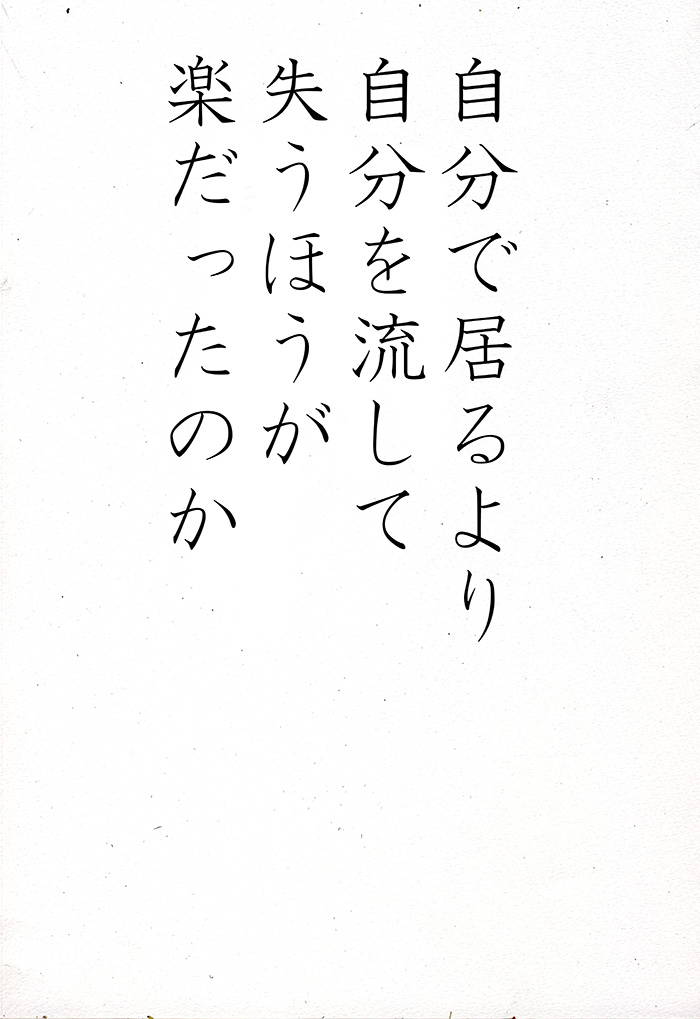 自分で居るより
自分を流して
失うほうが
楽だったのか